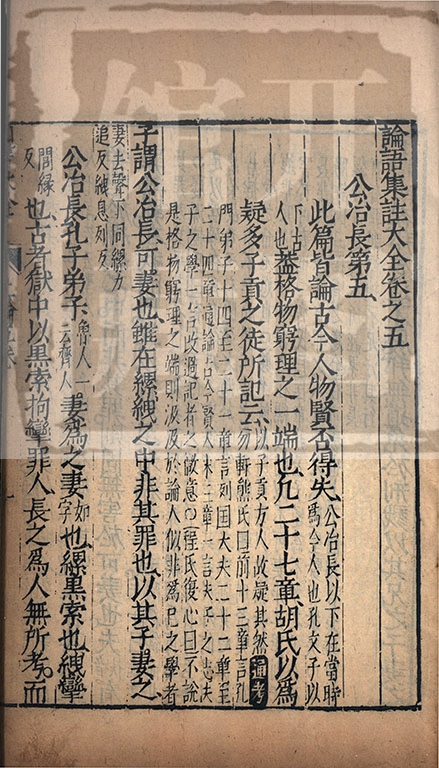 論語集註大全卷之五
公冶長第五
此篇皆論古今人物賢否得失公冶長以下在當時爲今人也孔文子以
下古人也蓋格物窮理之一端也凡二十七章胡氏以爲
疑多子貢之徒所記云以子貢方人故疑其然通考勿軒熊氏曰前十三章言孔
門弟子十四至二十一章言列國大夫二十二章至
二十四章通論古今賢人末三章一言夫子之志夫
子之學一言改過記者之微意○程氏復心曰不說
是格物窮理之端則汲汲於論人似非爲己之學者
子謂公冶長可妻也雖在縲絏之中非其罪也以其子妻之
妻去聲下同縲力
追反絏息列反
公冶長孔子弟子魯人一云齊人妻爲之妻如字也縲黑索也絏攣
閭緣反也古者獄中以黑索拘攣罪人長之爲人無所考而